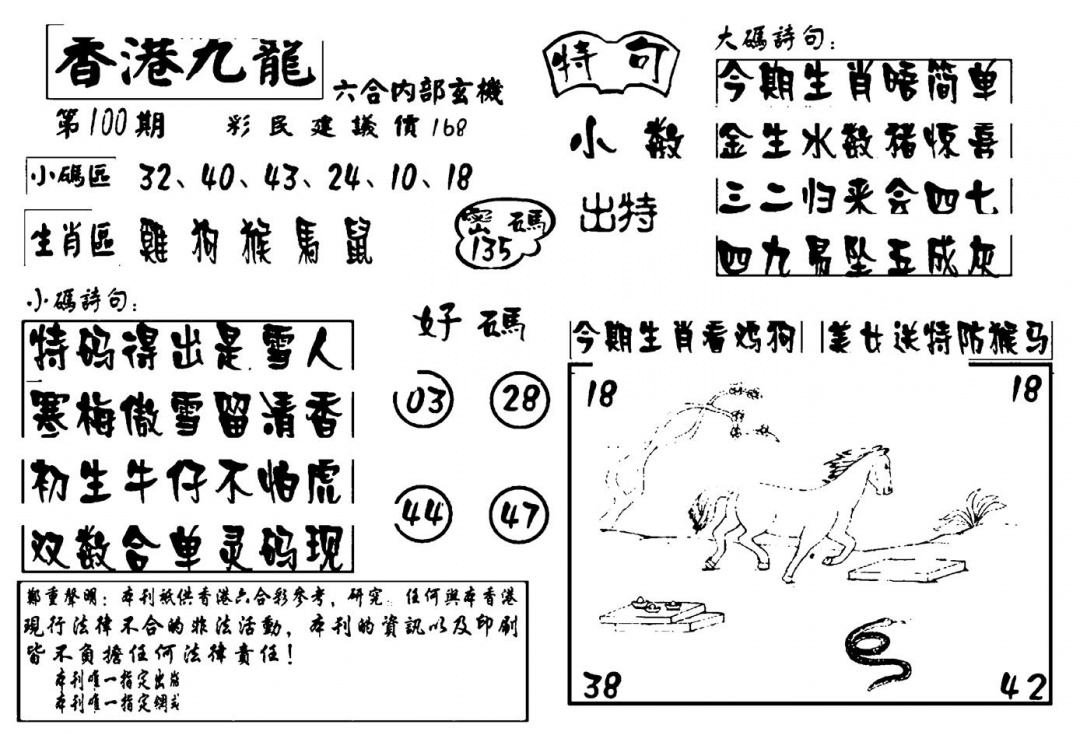 香港九龍
六合内部玄機
第100期 彩民建議價168
小碼區 32、40、43、24、10、18
生肖區 雞 狗 猴 馬 鼠
密碼
135
小碼詩句：
特码得出是雪人
寒梅傲雪留清香
初生牛仔不怕虎
双数合单灵码现
好碼
03 28
44 47
鄭重聲明：本刊衹供香港六合彩參考，研究．任何與本香港
現行法律不合的非法活動，本刊的資訊以及印刷
皆不負擔任何法律責任！
本刊唯一指定出版
本刊唯一指定網或
特句
小数
出特
大碼詩句：
今期生肖唔简单
金生水数猪惊喜
三二归来会四七
四九易坠五成灰
今期生肖看鸡狗 美女送特防猴马
18 18
38 42